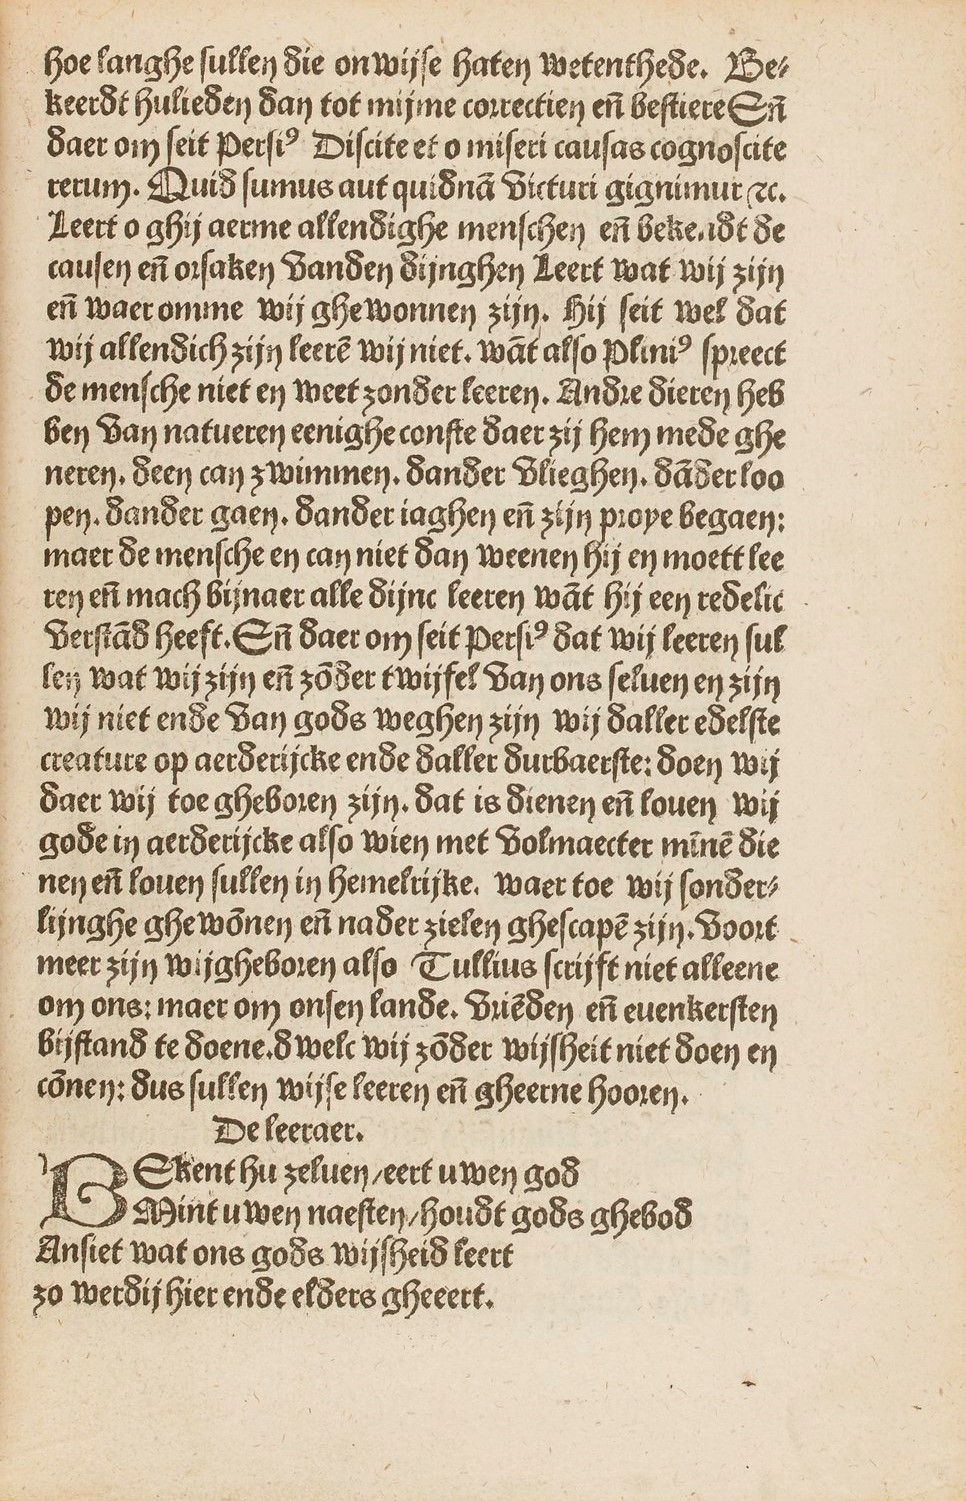 hoe langhe sullen die onwijse haten wetenthede. Be-
keerdt hulieden dan tot mijme correctien eñ bestiere Eñ
daer om seit Persiꝰ Discite et o miseri causas cognoscite
rerum. Quid sumus aut quidnā victuri gignimur ⁊c.
Leert o ghij aerme allendighe menschen eñ beke.ndt de
causen eñ orsaken vanden dijnghen Leert wat wij zijn
eñ waer omme wij ghewonnen zijn. Hij seit wel dat
wij allendich zijn leerē wij niet. wāt also Pliniꝰ spreect
de mensche niet en weet zonder leeren. Andre dieren heb
ben van natueren eenighe conste daer zij hem mede ghe
neren. deen can zwimmen. dander vlieghen. dāder loo
pen. dander gaen. dander iaghen eñ zijn proye begaen:
maer de mensche en can niet dan weenen hij en moett lee
ren eñ mach bijnaer alle dijnc leeren wāt hij een redelic
verstād heeft. Eñ daer om seit Persiꝰ dat wij leeren sul
len wat wij zijn eñ zōder twijfel van ons seluen en zijn
wij niet ende van gods weghen zijn wij daller edelste
creature op aerderijcke ende daller durbaerste: doen wij
daer wij toe gheboren zijn. dat is dienen eñ louen wij
gode in aerderijcke also wien met volmaecter mīnē die
nen eñ louen sullen in hemelrijke. waer toe wij sonder-
lijnghe ghewōnen eñ nader zielen ghescapē zijn. Voort
meer zijn wijgheboren also Tullius scrijft niet alleene
om ons: maer om onsen lande. vriēden eñ euenkersten
bijstand te doene. dwelc wij zōder wijsheit niet doen en
cōnen: dus sullen wijse leeren eñ gheerne hooren.
De leeraer.
BEkent hu zeluen/eert uwen god
Mint uwen naesten/houdt gods ghebod
Ansiet wat ons gods wijsheid leert
zo werdij hier ende elders gheeert.